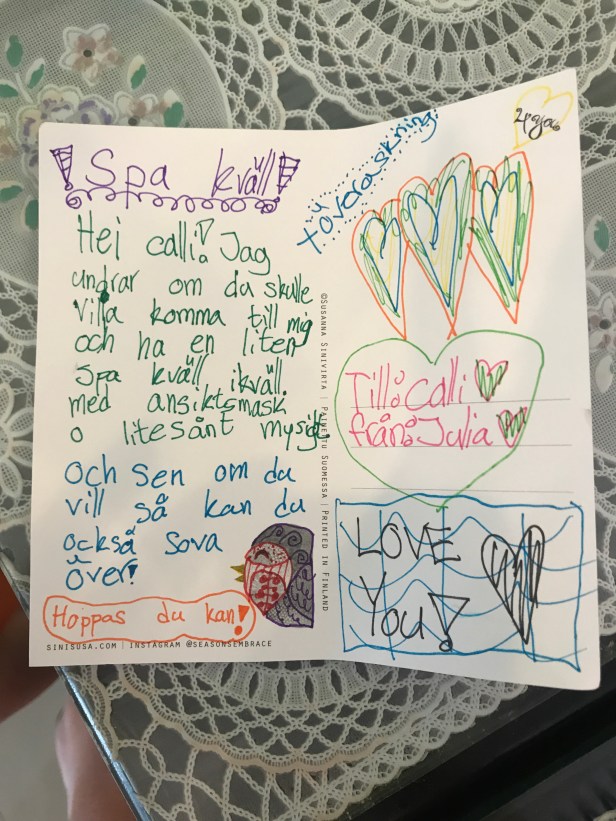 Spa kväll!
Hei calli! Jag
undrar om du skulle
villa komma till mig
och ha en liten
spa kväll ikväll.
med ansiktsmask
o lite sånt mysigt.
och sen om du
vill så kan du
också sova
över!
Hoppas du kan!
SINISUSA.COM | INSTAGRAM @SEASONSEMBRACE
©SUSANNA SINIVIRTA | PAINETTU SUOMESSA | PRINTED IN FINLAND
+överaskning!
Till: calli
från: Julia
LOVE
You!